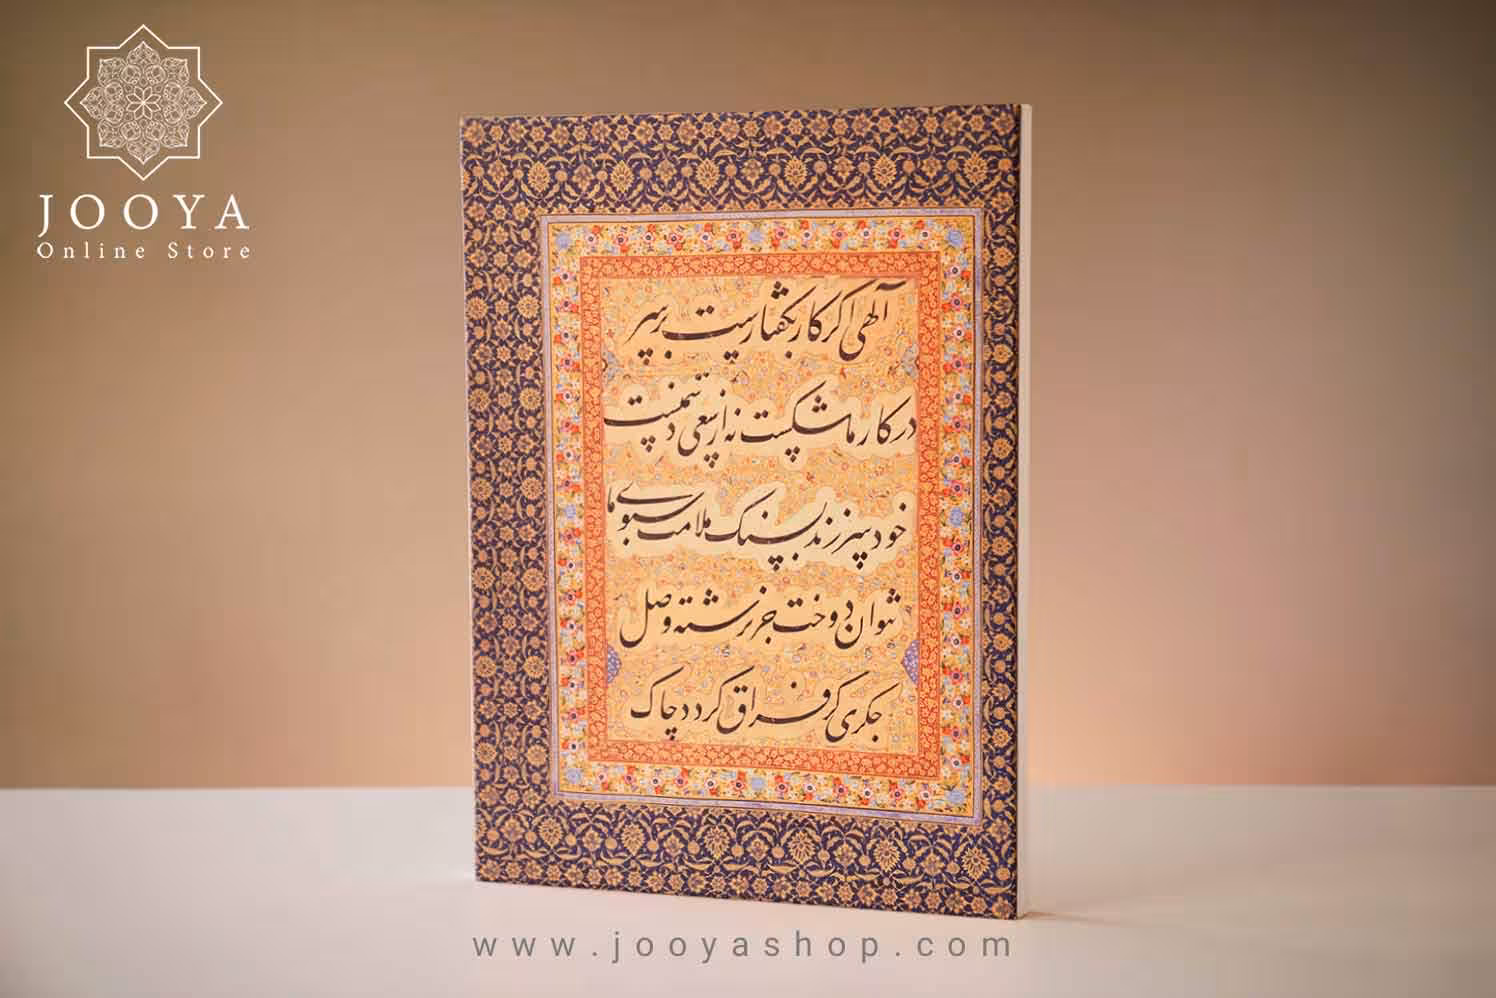 JOOYA
Online Store
آلهی اکر کار بکفتارست برسر
در کار ما شکست نه از سعی دشمنست
خود بسنک ملامت سبوی ما
نتوان دوخت جز برشته وصل
جکری کز فراق کردد چاک
www.jooyashop.com